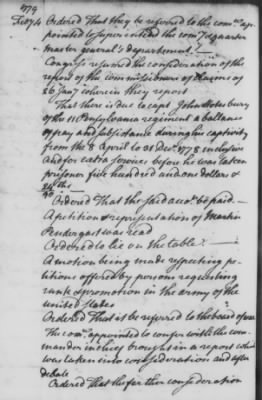 1779
Feb 4 Ordered That they be referred to the com.ee ap
pointed to superintend the com.y & quarter
master general's department.
Congress resumed the consideration of the
report of the commissioners of claims of
26 Jan.y wherein they report
That there is due to capt John Stotesbury
of the 11 Pensylvania regiment a ballance
of pay and subsistance during his captivity
from the 8 April to 31 Dec.r 1778 inclusive
and for extra services before he was taken
prisoner five hundred and one dollars &
24ths
90
Ordered That the said acc.t be paid.
A petition & representation of Martin
Pendergast was read
Ordered to lie on the table.
A motion being made respecting pe
titions offered by persons requesting
rank & promotion in the army of the
united states
Ordered That it be referred to the board of war
The com.ee appointed to confer with the com
mander in chief brought in a report which
was taken into consideration and after
debate
Ordered That the farther consideration